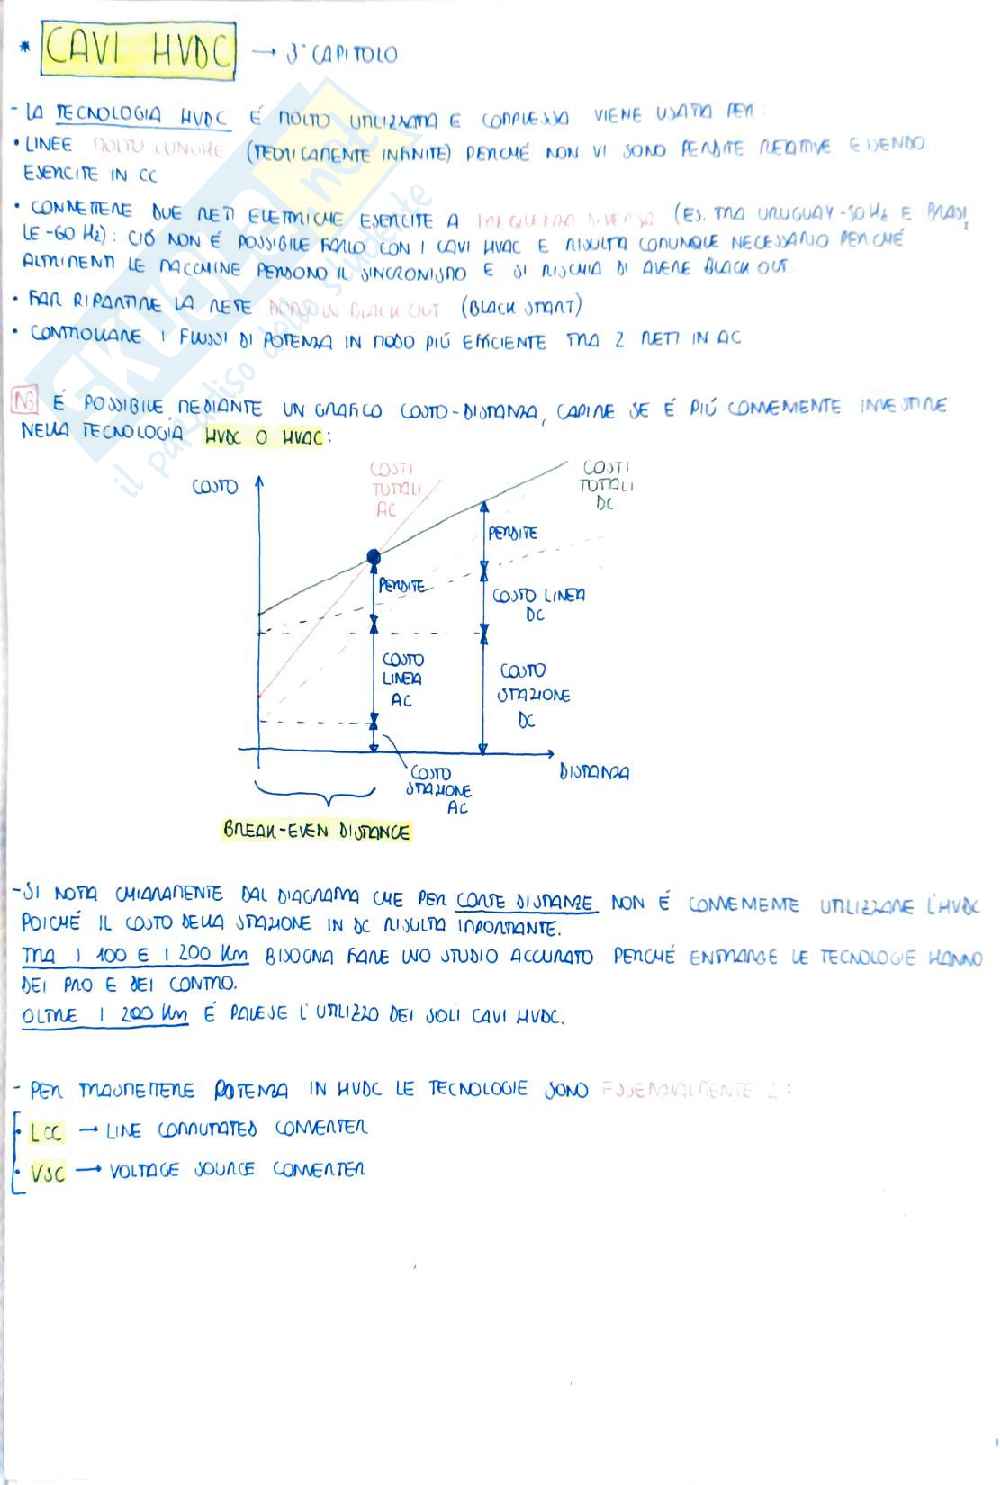 * CAVI HVDC → 3° CAPITOLO
- LA TECNOLOGIA HVDC É MOLTO UTILIZZATA E COMPLESSA VIENE USATA PER:
• LINEE MOLTO LUNGHE (TEORICAMENTE INFINITE) PERCHÉ NON VI SONO PERDITE REATTIVE ESSENDO
ESERCITE IN CC
• CONNETTERE DUE RETI ELETTRICHE ESERCITE A FREQUENZA DIVERSA (ES. TRA URUGUAY-50 Hz E BRASI
LE-60 Hz): CIÓ NON É POSSIBILE FARLO CON I CAVI HVAC E RISULTA COMUNQUE NECESSARIO PERCHÉ
ALTRIMENTI LE MACCHINE PERDONO IL SINCRONISMO E SI RISCHIA DI AVERE BLACK OUT
• FAR RIPARTIRE LA RETE DOPO UN BLACK OUT (BLACK START)
• CONTROLLARE I FLUSSI DI POTENZA IN MODO PIÚ EFFICIENTE TRA 2 RETI IN AC
NB É POSSIBILE, MEDIANTE UN GRAFICO COSTO-DISTANZA, CAPIRE SE É PIÚ CONVENIENTE INVESTIRE
NELLA TECNOLOGIA HVDC O HVAC:
COSTO
COSTI
TOTALI
AC
COSTI
TOTALI
DC
PERDITE
PERDITE
COSTO LINEA
DC
COSTO
LINEA
AC
COSTO
STAZIONE
DC
DISTANZA
COSTO
STAZIONE
AC
BREAK-EVEN DISTANCE
- SI NOTA CHIARAMENTE DAL DIAGRAMMA CHE PER CORTE DISTANZE NON É CONVENIENTE UTILIZZARE L'HVDC
POICHÉ IL COSTO DELLA STAZIONE IN DC RISULTA IMPORTANTE.
TRA I 100 E I 200 Km BISOGNA FARE UNO STUDIO ACCURATO PERCHÉ ENTRAMBE LE TECNOLOGIE HANNO
DEI PRO E DEI CONTRO.
OLTRE I 200 Km É PALESE L'UTILIZZO DEI SOLI CAVI HVDC.
- PER TRASMETTERE POTENZA IN HVDC LE TECNOLOGIE SONO ESSENZIALMENTE 2:
• LCC → LINE COMMUTATED CONVERTER
• VSC → VOLTAGE SOURCE CONVERTER
SKUOLA.net
il paradiso dello studente